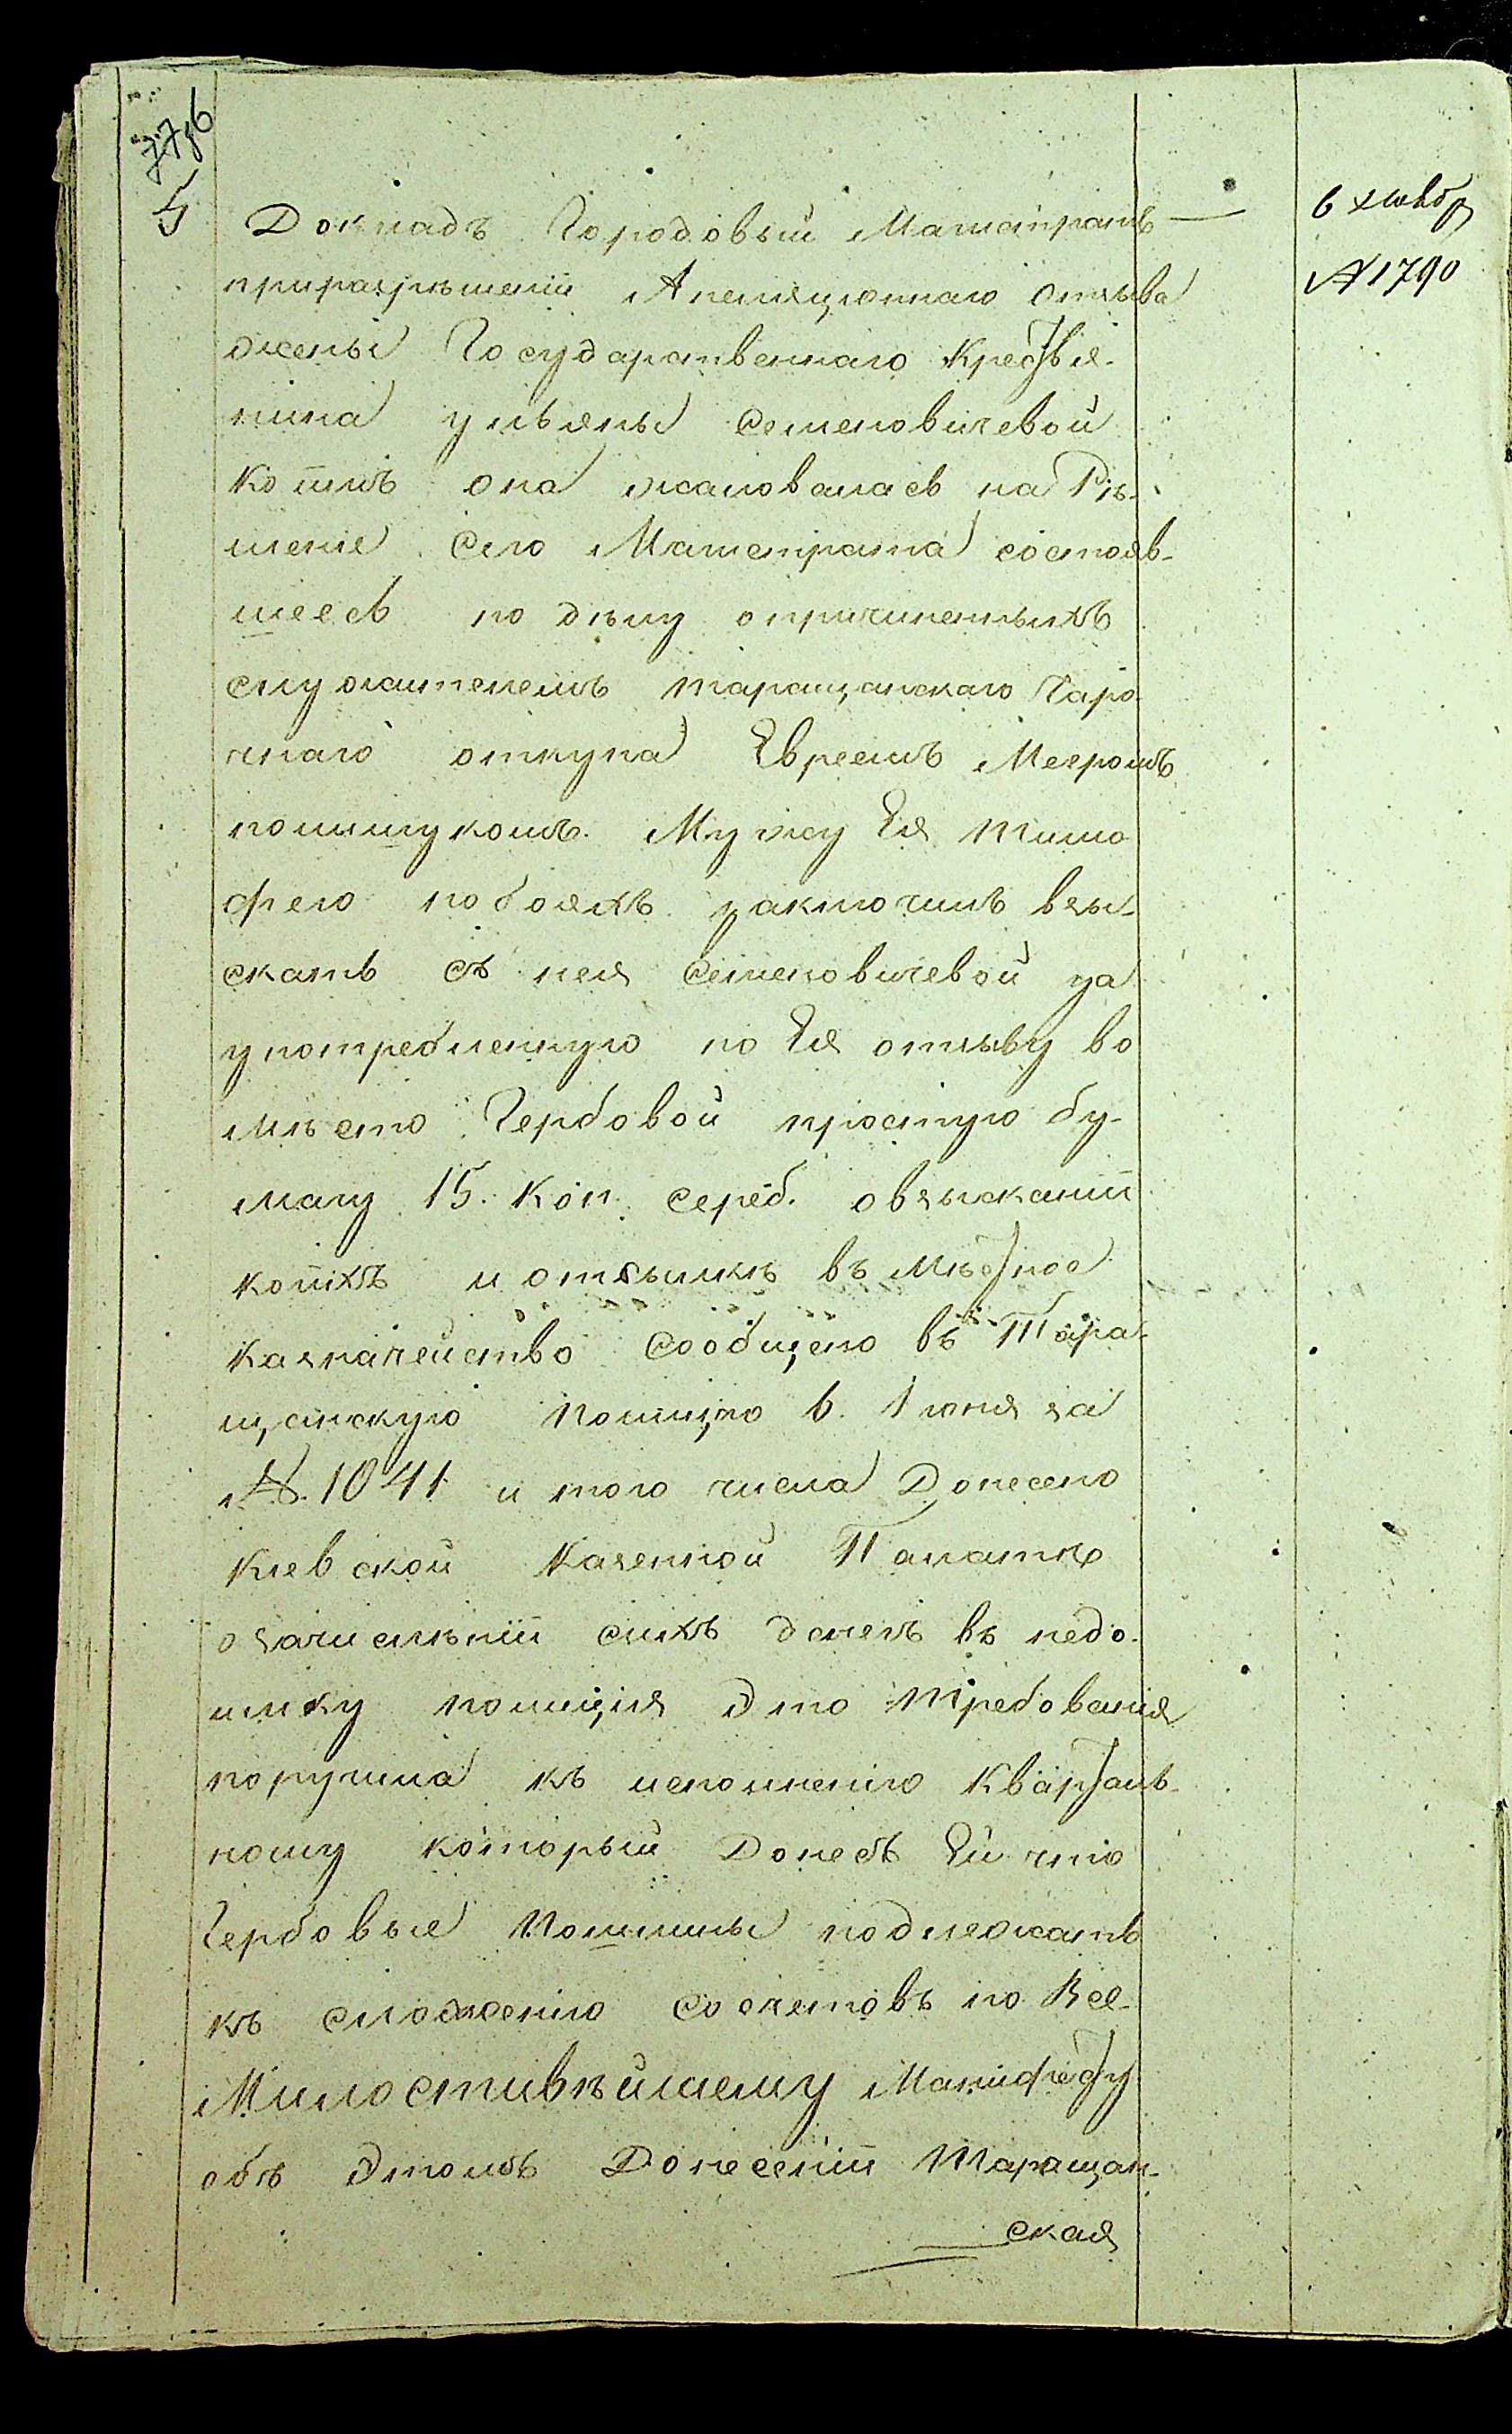 5
Докладъ Городовый Магистратъ —
приразрѣшеніи Апеляціоннаго отзыва
жены Государственнаго Крестья-
нина ульяны Семеновичевой
коимъ она жаловалась на Рѣ-
шеніе Сего Магистрата состояв-
шеесь по дѣлу опричиненныхъ
служителемъ таращанскаго Чаро
чнаго откупа Евреемъ Мееромъ
полищукомъ. Мужу Ея тимо
фею побояхъ заключилъ взы-
скать съ нея Семеновичевой за
употребленную по Ея отзыву во
мѣсто Гербовой простую бу-
магу 15. коп. сереб. овзысканіи
коихъ и отсылкѣ въ мѣстное
казначейство Сообщено въ Тара-
щанскую полицію 6. Іюня за
№ 1041 и того числа Донесено
Кіевской Казенной Палатѣ
озачисленіи сихъ денегъ въ недо-
имку полиція Это требованія
поручила къ исполненію Кварталь-
ному который Донесъ Ей что
Гербовые пошлины подлежатъ
къ сложенію со счетовъ по Все-
Милостивѣйшему Манифесту
объ Этомъ Донесеніи Таращан-
ская
№ 1790